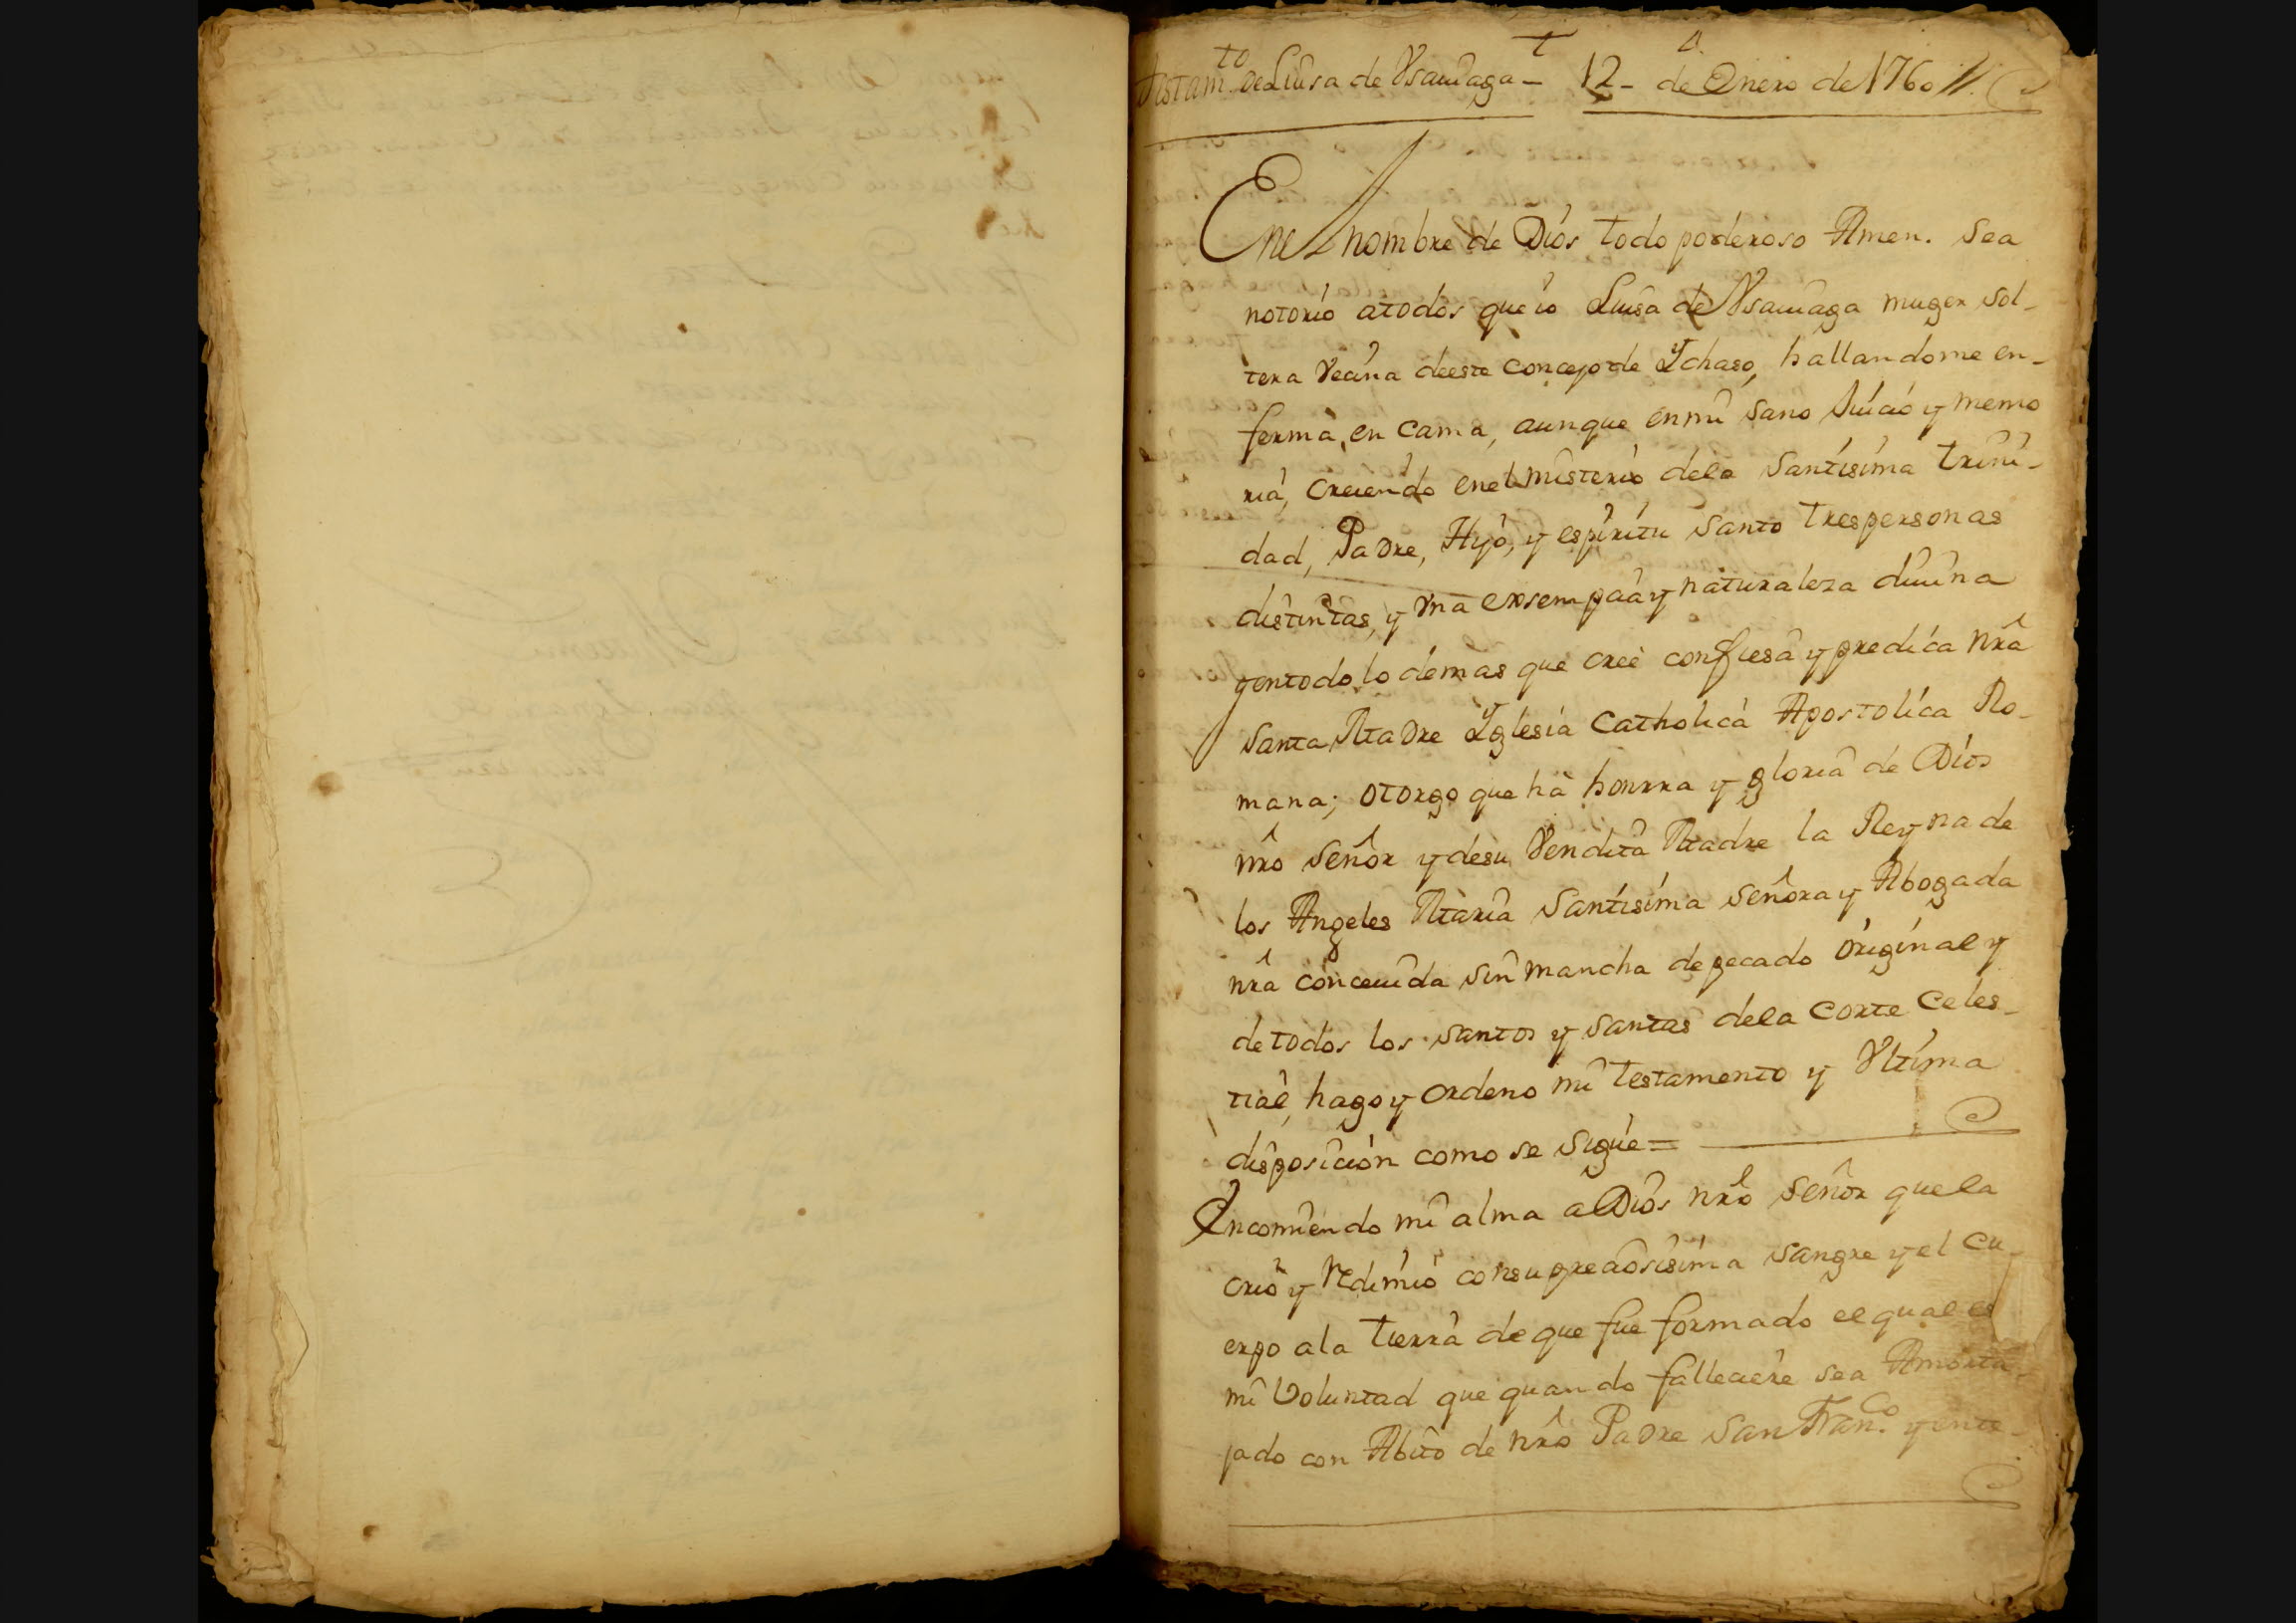 Testam.to de Luisa de Vsauiaga - 12 - de Enero de 1760 //.
En el nombre de Dios todo poderoso Amen. Sea
notorio atodos que io Luisa de Vsauiaga muger sol-
tera Vecina deeste concejo de Ychaso, hallandome en-
ferma, en cama, aunque enmi sano Juicio y memo
ria, creiendo enel misterio dela Santisima trini-
dad, Padre, Hijo, y espiritu Santo tres personas
distintas, y Vna y naturaleza diuina
yentodo lo demas que cree confiesa y predica nra
Santa Madre Yglesia Catholica Apostolica Ro-
mana; otorgo que hà honrra y gloria de Dios
nro Señor y desu Vendita Madre la Reyna de
los Angeles Maria Santisima Señora y Abogada
nra conceuida sin mancha de pecado original y
detodos los santos y santas dela corte Celes-
tial, hago y ordeno mi testamento y Vltima
disposicion como se sigue =
Encomiendo mi alma a Dios nro Señor quela
crio y Redimio consu preciosisima sangre y el cu-
erpo ala tierra de que fue formado el qual es
mi Voluntad que quando falleciere sea Amorta-
jado con Abito de nro Padre San Fran.co y ente-